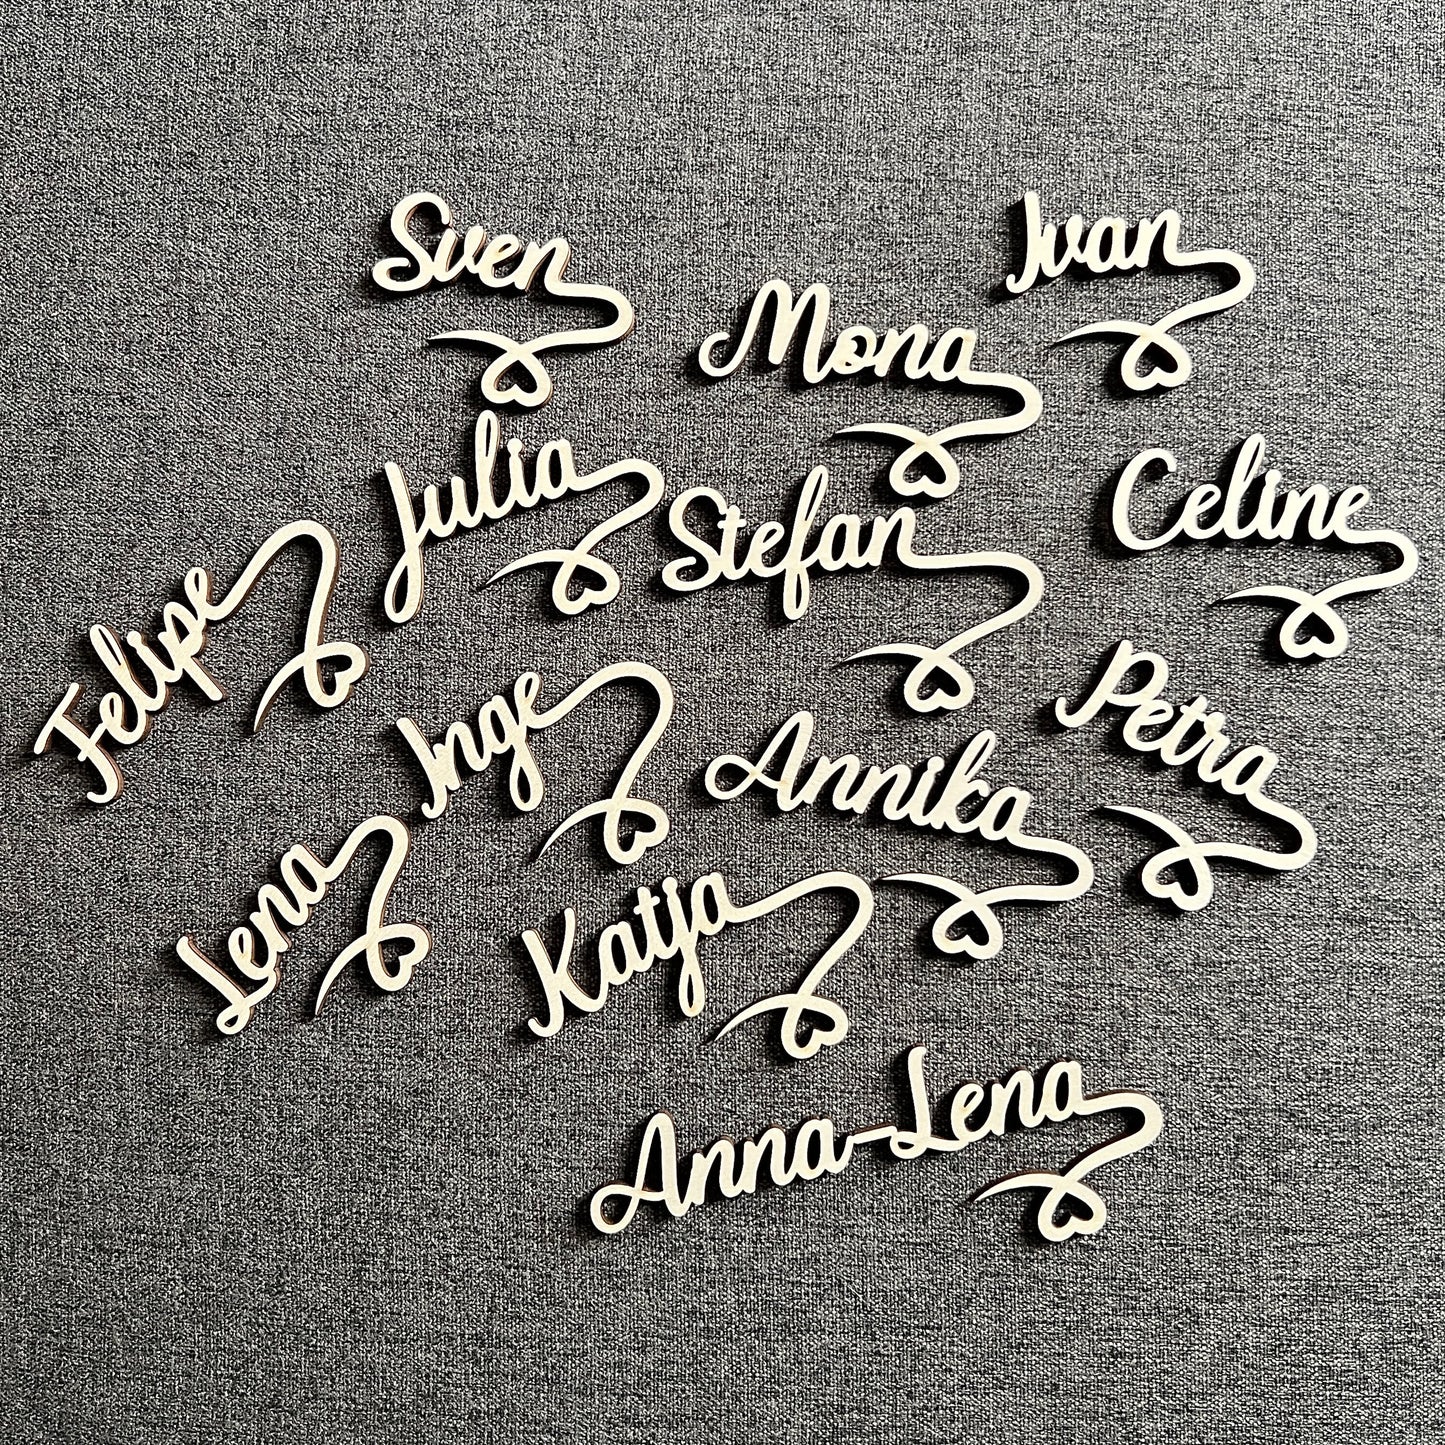 Sven
Ivan
Mona
Julia
Stefan
Celine
Felipe
Inge
Annika
Petra
Lena
Katja
Anna-Lena